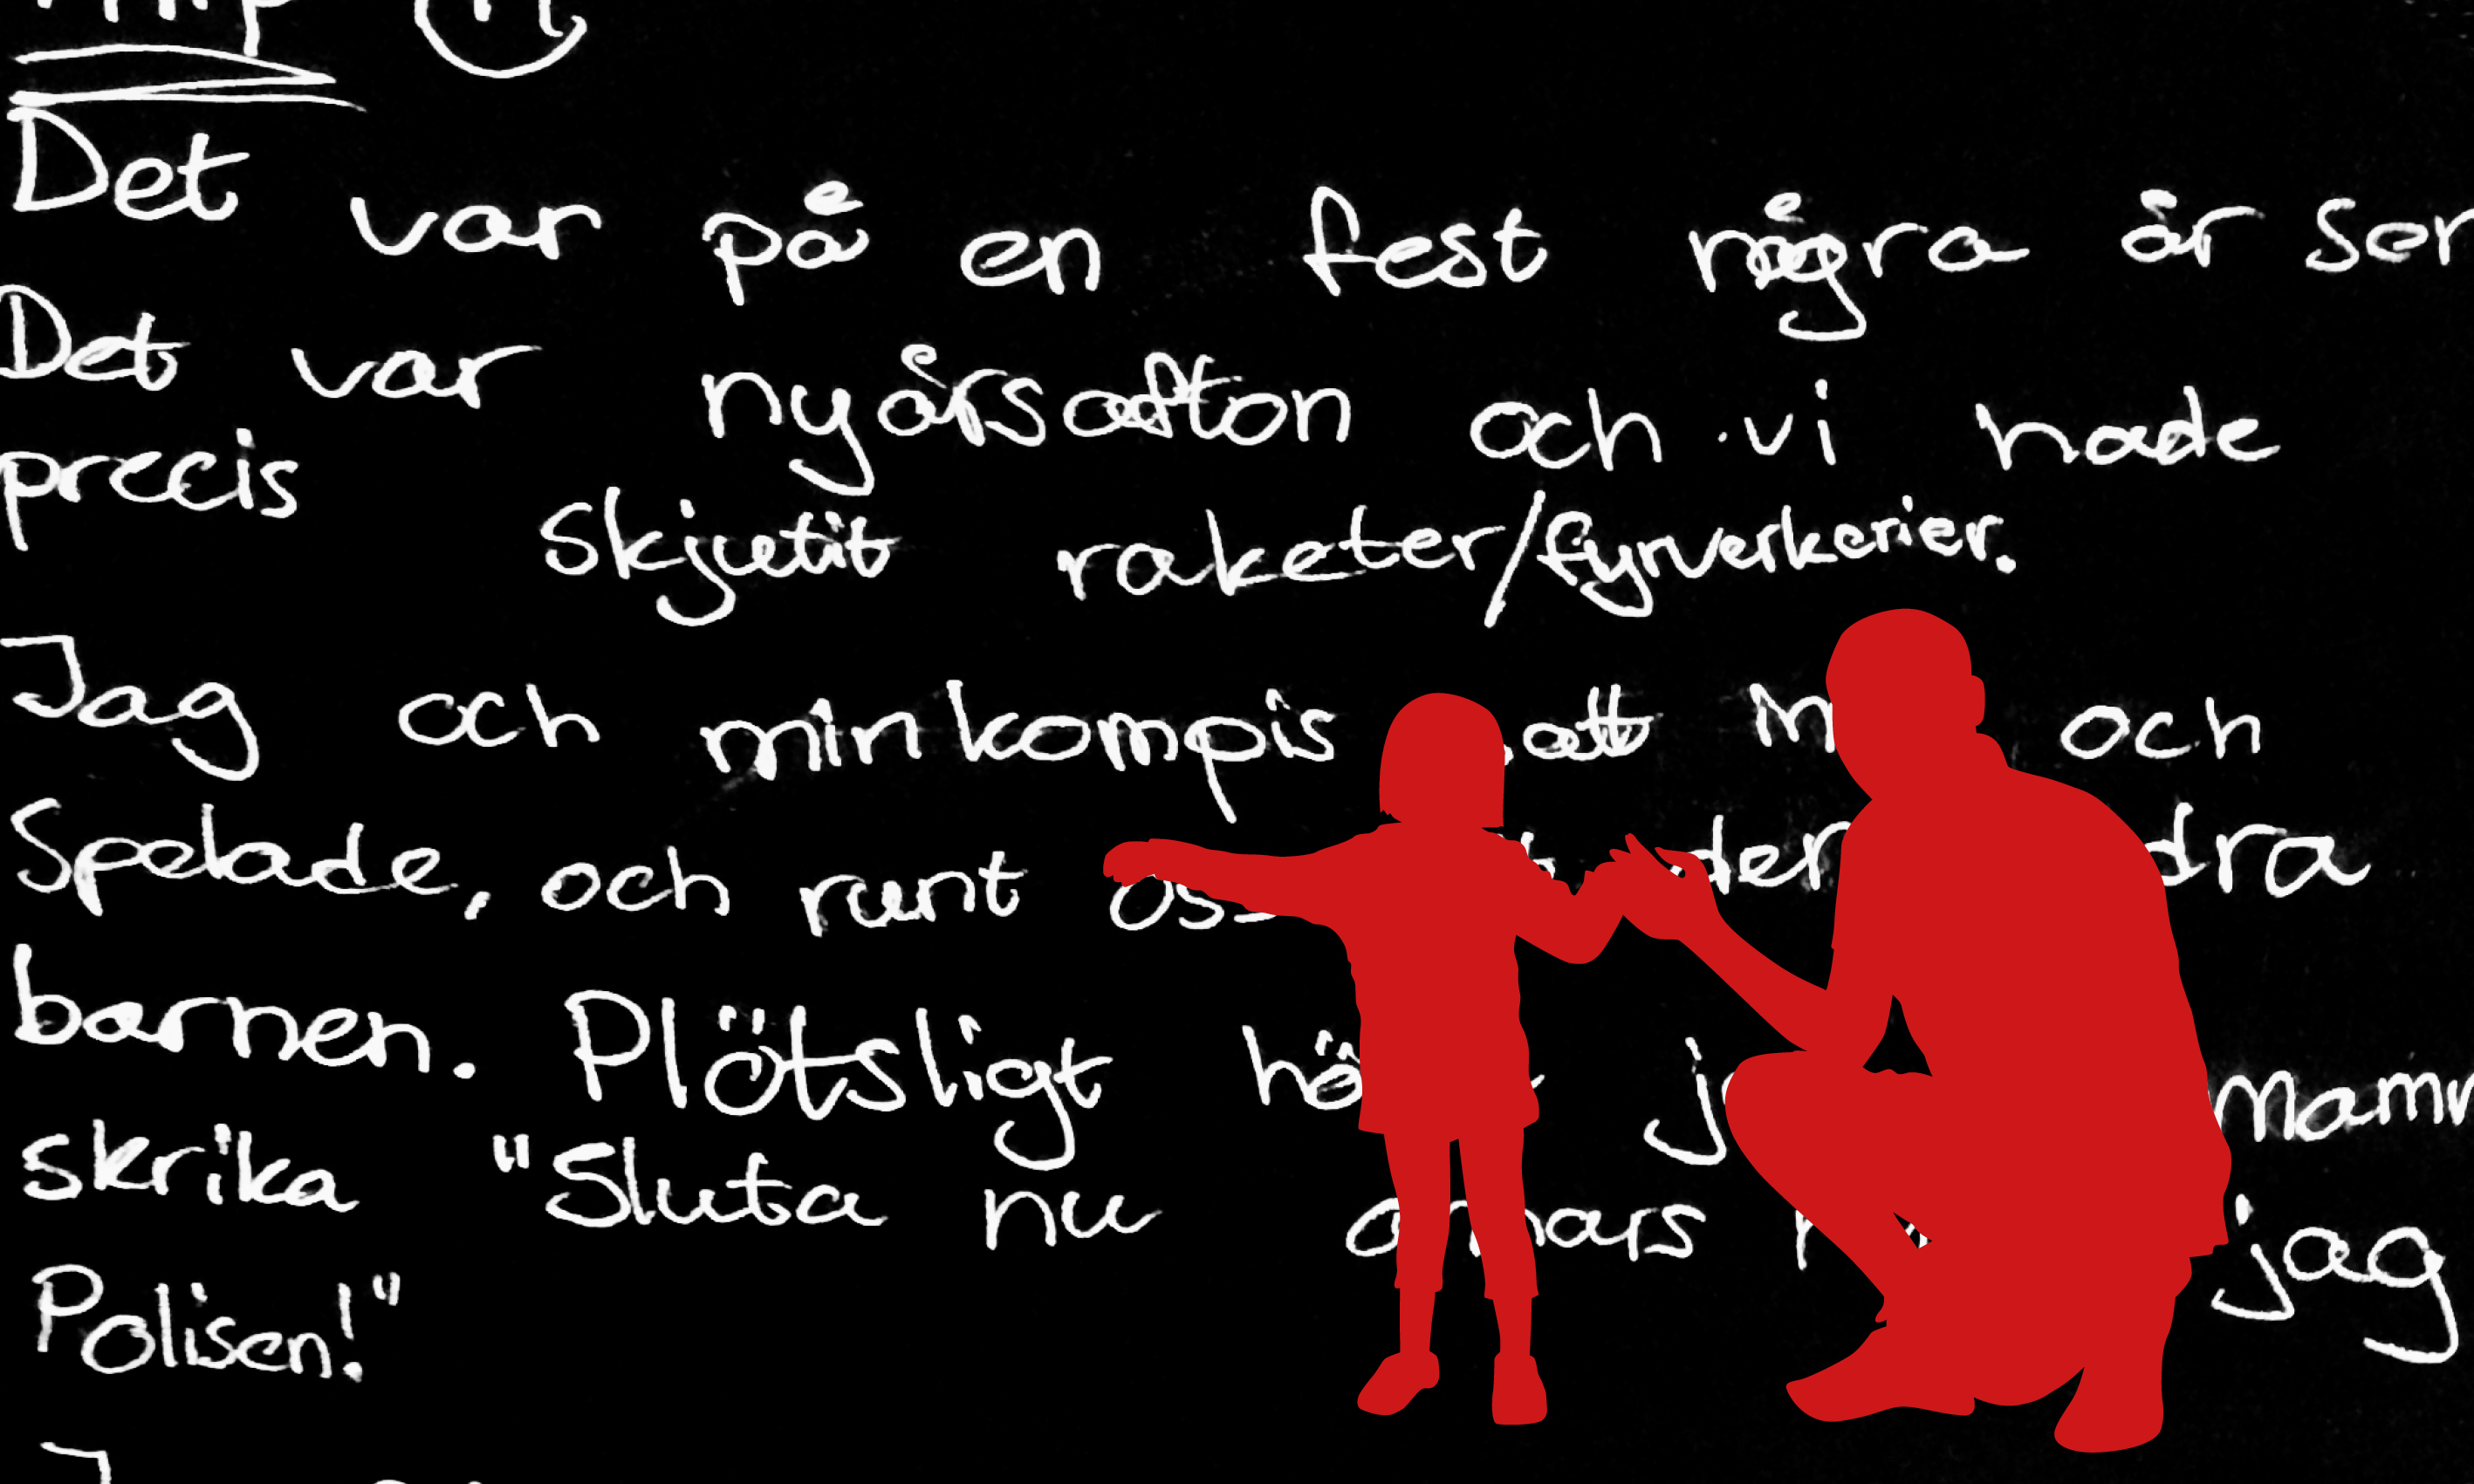 Det var på en fest några år
Det var nyårsafton och vi hade
precis skjutit raketer/fyrverkerier.
Jag och min kompis satt och
Spelade, och runt oss
barnen. Plötsligt
skrika "Sluta nu jag
Polisen!"